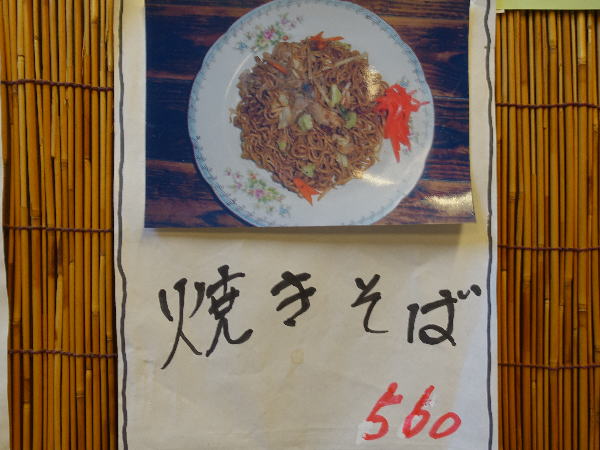 焼きそば
560